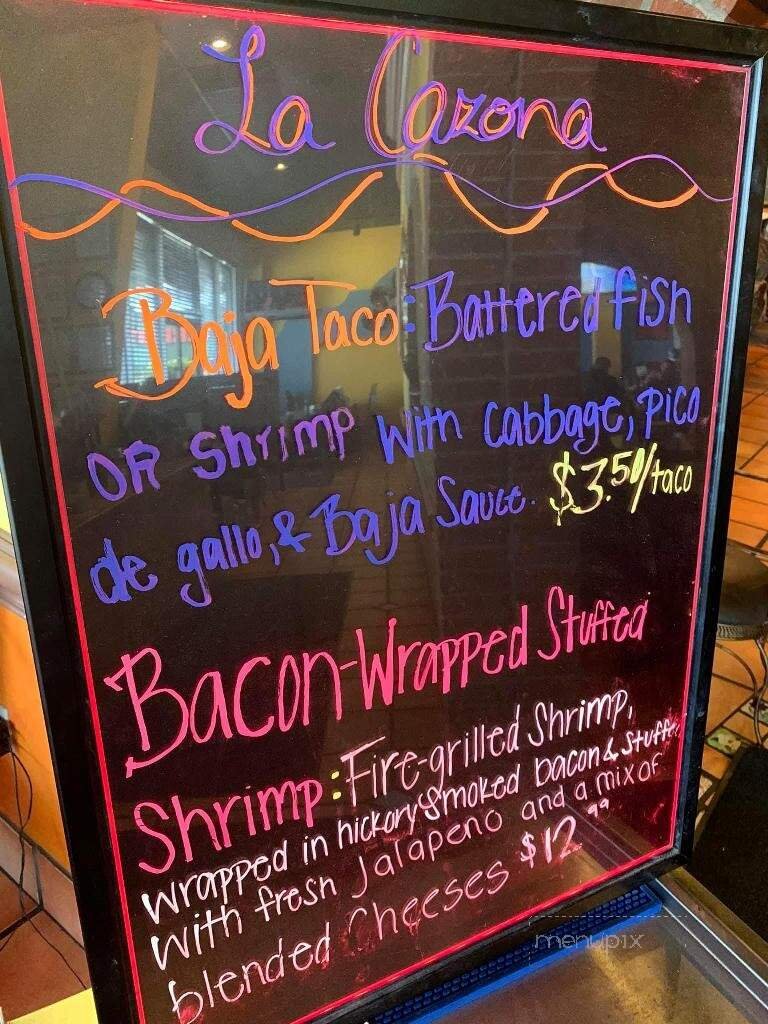 La Cazona
Baja Taco: Battered fish
OR Shrimp With Cabbage, pico
de gallo, & Baja Sauce. $3.50/taco
Bacon-Wrapped Stuffed
Shrimp: Fire-grilled Shrimp,
wrapped in hickory smoked bacon & stuffed
with fresh Jalapeno and a mix of
blended Cheeses $12.99
menupix